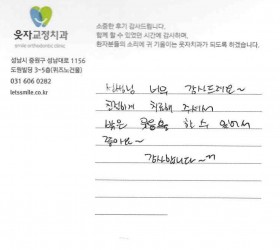 웃자교정치과
smile orthodontics clinic
성남시 중원구 성남대로 1156
도원빌딩 3~5층(퀴즈노건물)
031 606 0282
letssmile.co.kr
소중한 후기 감사드립니다.
함께 할 수 있었던 시간에 감사하며,
환자분들의 소리에 귀 기울이는 웃자치과가 되도록 하겠습니다.
선생님 너무 감사드려요~
친절하게 치료해 주셔서
밝은 웃음을 할 수 있어서
좋아요~
감사합니다~^^